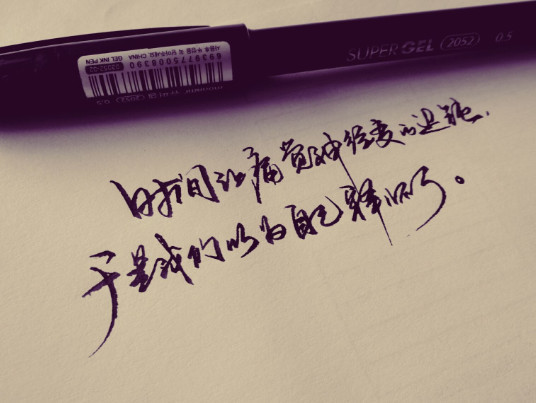 SUPER GEL 2052 0.5
GEL INK PEN
时间让痛觉神经变的迟钝.
于是我们以为自己释怀了。